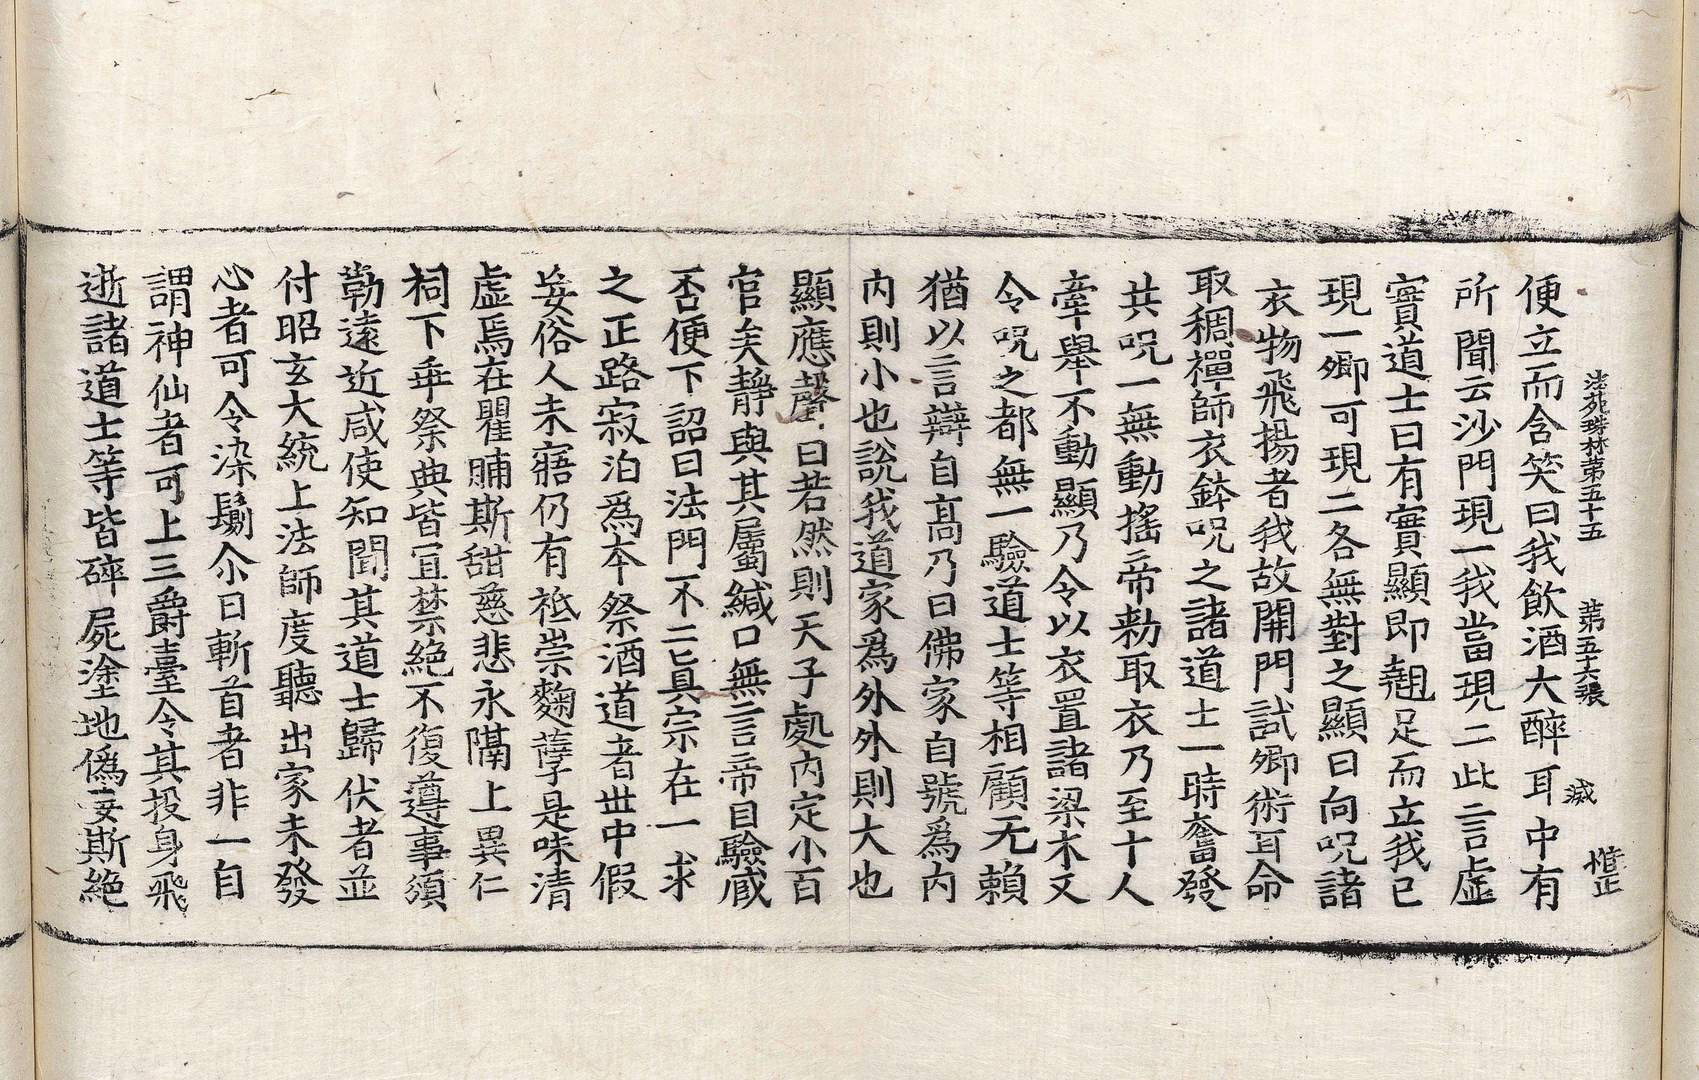 法苑珠林第五十五 第五十六張 滅 惟正
便立而含笑曰我飲酒大醉耳中有
所聞云沙門現一我當現二此言虛
實道士曰有實顯即翹足而立我已
現一卿可現二各無對之顯曰向呪諸
衣物飛揚者我故開門試卿術耳命
取稠禪師衣鉢呪之諸道士一時奮發
共呪一無動搖帝勑取衣乃至十人
牽舉不動顯乃令以衣置諸梁木又
令呪之都無一驗道士等相顧无賴
猶以言辯自高乃曰佛家自號爲內
內則小也說我道家爲外外則大也
顯應聲曰若然則天子處內定小百
官矣靜與其屬緘口無言帝目驗臧
否便下詔曰法門不二眞宗在一求
之正路寂泊爲本祭酒道者世中假
妄俗人未寤仍有祗崇麴孽是味清
虛焉在瞿脯斯甜慈悲永隔上異仁
祠下乖祭典皆宜禁絕不復遵事須
勒遠近咸使知聞其道士歸伏者並
付昭玄大統上法師度聽出家未發
心者可令染鬀尒日斬首者非一自
謂神仙者可上三爵臺令其投身飛
逝諸道士等皆碎屍塗地僞妄斯絕